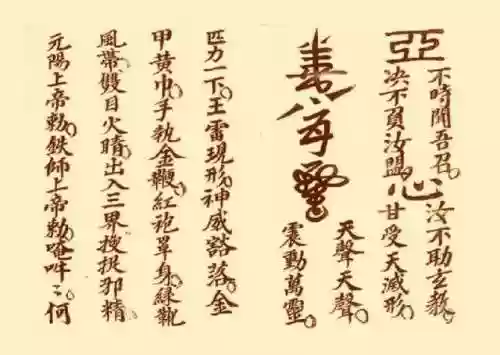 亞
不時聞吾召。
决不負汝盟。
心
汝不助玄教。
甘受天滅形。
天聲天聲
震動萬靈。
匹力一下。王雷現形。神威豁落。金
甲黃巾。手執金鞭。紅袍罩身。綠靴
風帶。雙目火睛。出入三界。搜捉邪精
元陽上帝勅。鉄師上帝勅。唵吽〻。何